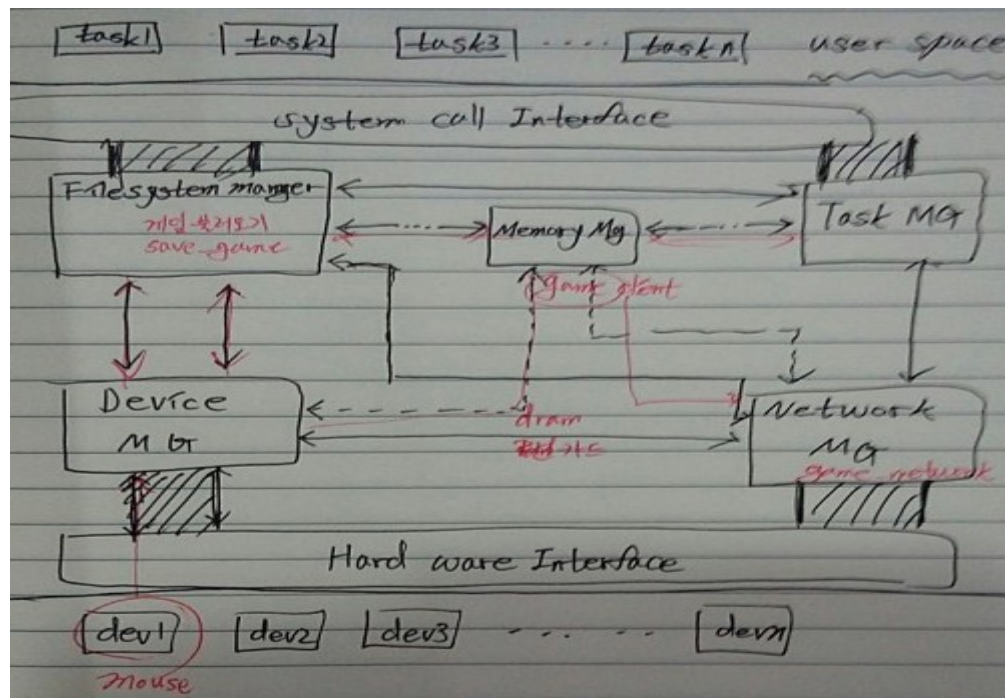 task1 task2 task3 .... taskn user space
system call Interface
Filesystem manger
게임 불러오기
save_game
Memory Mg
Task MG
game
Device
MG
dram
Network
MG
game_network
Hard ware Interface
dev1 dev2 dev3 - ... .. devn
mouse